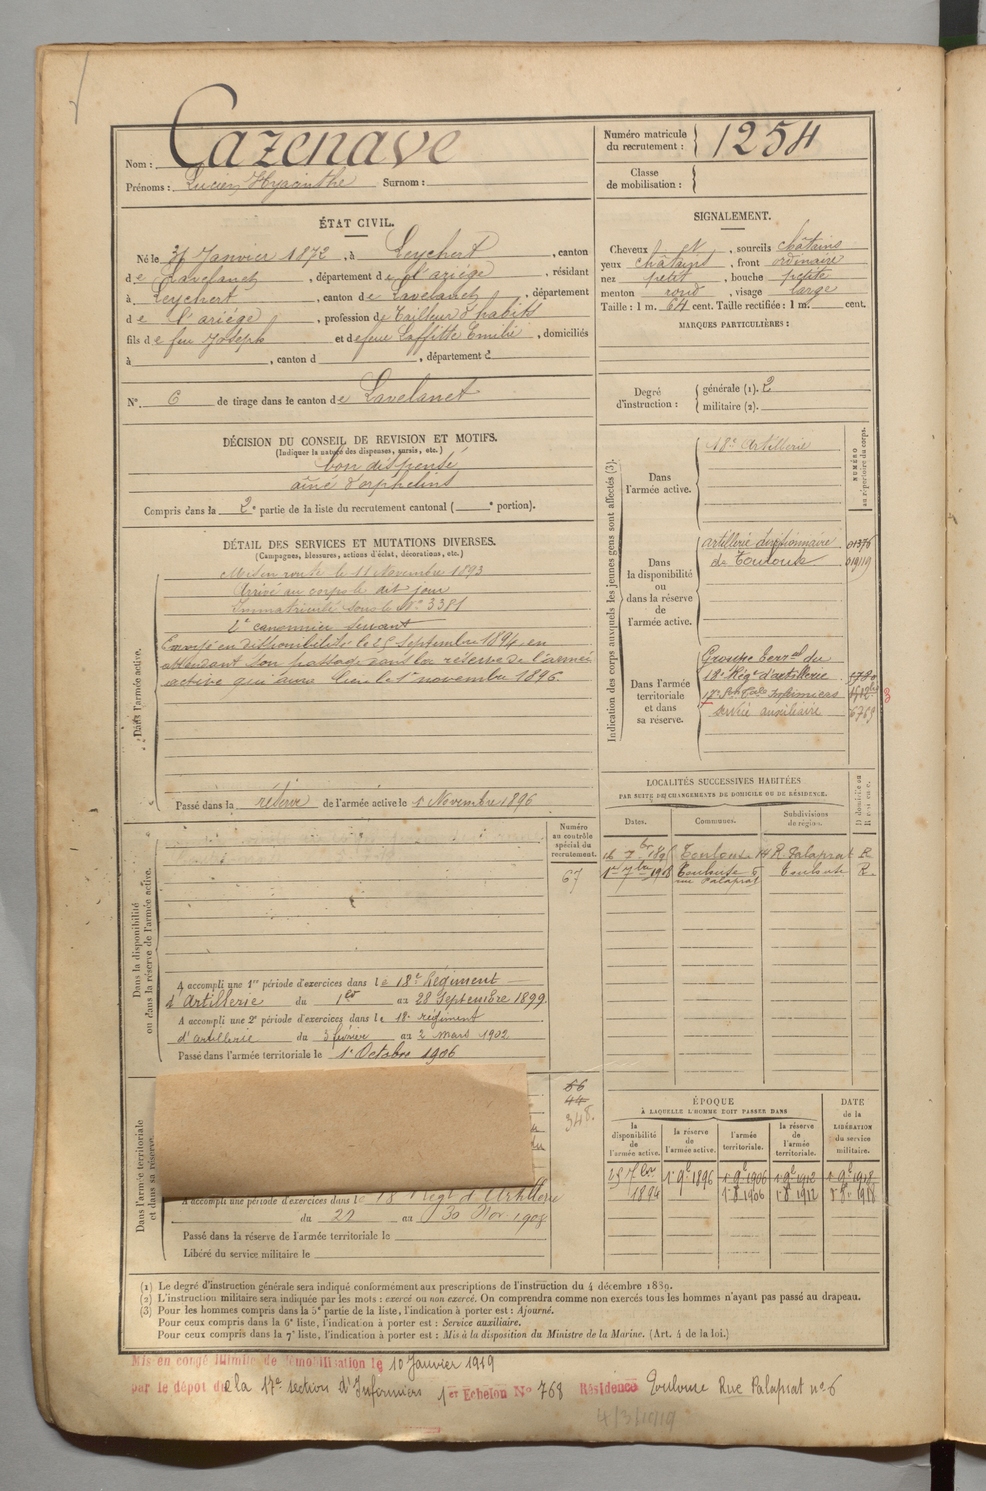 Nom : Cazenave
Prénoms : Lucien Hyacinthe Surnom :
Numéro matricule du recrutement : 1254
Classe de mobilisation :
ÉTAT CIVIL.
Né le 31 Janvier 1872, à Leychert, canton
de Lavelanet, département de l'ariége, résidant
à Leychert, canton de Lavelanet, département
de l'ariége, profession de Tailleur d'habits
fils de feu Joseph et de feue Laffitte Emilie, domiciliés
à , canton d , département d
N° 6 de tirage dans le canton de Lavelanet
SIGNALEMENT.
Cheveux et , sourcils châtains
yeux châtains, front ordinaire
nez petit, bouche petite
menton rond, visage large
Taille : 1 m. 64 cent. Taille rectifiée : 1 m. cent.
MARQUES PARTICULIÈRES :
Degré d'instruction : générale (1). 2
militaire (2).
DÉCISION DU CONSEIL DE REVISION ET MOTIFS.
(Indiquer la nature des dispenses, sursis, etc.)
bon dispensé
aîné d'orphelins
Compris dans la 2e partie de la liste du recrutement cantonal ( e portion).
DÉTAIL DES SERVICES ET MUTATIONS DIVERSES.
(Campagnes, blessures, actions d'éclat, décorations, etc.)
Dans l'armée active.
Mis en route le 11 Novembre 1893
Arrivé au corps le dit jour
Immatriculé sous le N° 3381
2e canonnier servant
Envoyé en disponibilité le 25 Septembre 1894 en
attendant son passage dans la réserve de l'armée
active qui aura lieu le 1er novembre 1896
Passé dans la réserve de l'armée active le 1er Novembre 1896
Indication des corps auxquels les jeunes gens sont affectés (3).
NUMÉRO au répertoire du corps.
Dans l'armée active.
18e Artillerie
Dans la disponibilité ou dans la réserve de l'armée active.
artillerie divisionnaire 01376
de Toulouse 019119
Dans l'armée territoriale et dans sa réserve.
Groupe Terral du
18e Régt d'artillerie
17e Son Infirmiers
service auxiliaire 6769
3
LOCALITÉS SUCCESSIVES HABITÉES
PAR SUITE DE CHANGEMENTS DE DOMICILE OU DE RÉSIDENCE.
Dates. Communes. Subdivisions de région.
16 7bre 189 Toulouse 14 R. Palaprat R.
1er 7bre 1918 Toulouse 6 rue Palaprat Toulouse R.
Dans la disponibilité ou dans la réserve de l'armée active.
Numéro au contrôle spécial du recrutement.
67
A accompli une 1re période d'exercices dans le 18e Régiment
d'Artillerie du 1er au 28 Septembre 1899.
A accompli une 2e période d'exercices dans le 18e régiment
d'artillerie du 3 février au 2 mars 1902
Passé dans l'armée territoriale le 1er Octobre 1906
Dans l'armée territoriale et dans sa réserve.
66
44
348.
A accompli une période d'exercices dans le 18e Régt d'Artillerie
du 22 au 30 Nov. 1908
Passé dans la réserve de l'armée territoriale le
Libéré du service militaire le
ÉPOQUE
À LAQUELLE L'HOMME DOIT PASSER DANS
la disponibilité de l'armée active. la réserve de l'armée active. l'armée territoriale. la réserve de l'armée territoriale. DATE de la LIBÉRATION du service militaire.
25 7bre 1894 1er 9e 1896 1er 9e 1906 1er 9e 1912 1er 9e 1918
1.8.1906 1.8.1912
(1) Le degré d'instruction générale sera indiqué conformément aux prescriptions de l'instruction du 4 décembre 1889.
(2) L'instruction militaire sera indiquée par les mots : exercé ou non exercé. On comprendra comme non exercés tous les hommes n'ayant pas passé au drapeau.
(3) Pour les hommes compris dans la 5e partie de la liste, l'indication à porter est : Ajourné.
Pour ceux compris dans la 6e liste, l'indication à porter est : Service auxiliaire.
Pour ceux compris dans la 7e liste, l'indication à porter est : Mis à la disposition du Ministre de la Marine. (Art. 4 de la loi.)
Mis en congé illimité de démobilisation le 10 Janvier 1919
par le dépôt de la 17e section d'Infirmiers 1er Echelon N° 768 Résidence Toulouse Rue Palaprat n° 6
4/3/1919